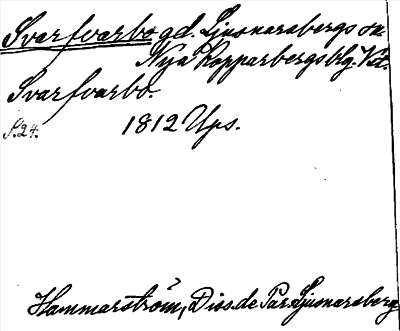 Svarfvarbo gd. Ljusnarsbergs sn
Nya Kopparbergs blg. Vstm.
Svarfvarbo.
S. 24. 1812 Ups.
Hammarström, Diss. de Par. Ljusnarsberg